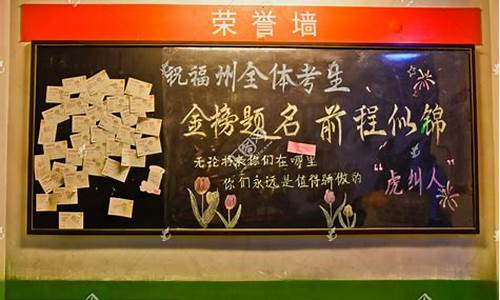 荣誉墙
祝福州全体考生
金榜题名 前程似锦
无论将来你们在哪里
你们永远是值得骄傲的
“虎纠人”